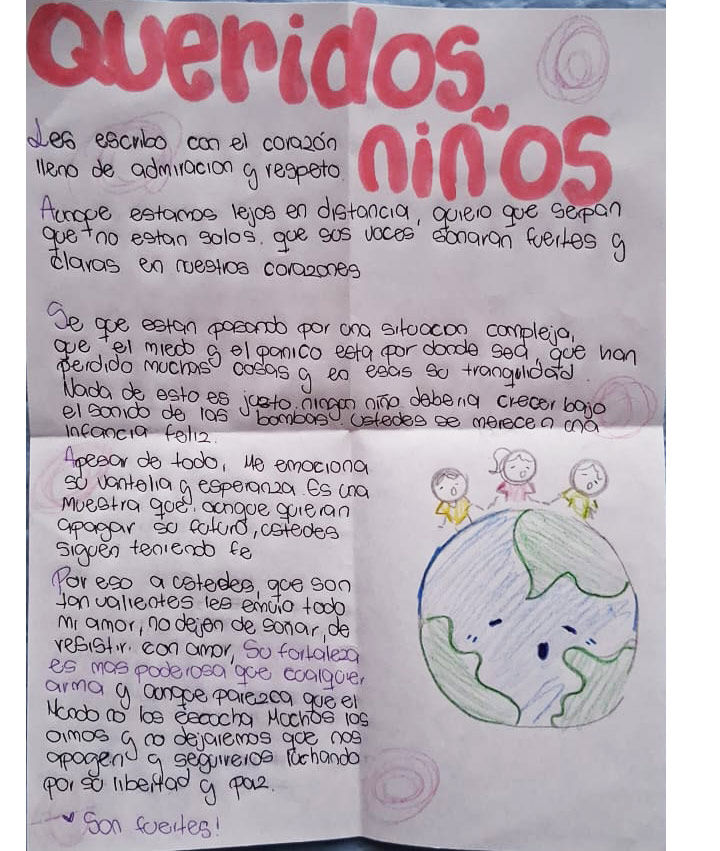 Queridos
niños
Les escribo con el corazón
lleno de admiracion y respeto.
Aunque estamos lejos en distancia, quiero que sepan
que no estan solos. que sus voces sonaran fuertes y
claras en nuestros corazones
Se que estan pasando por una situacion compleja,
que el miedo y el panico esta por donde sea, que han
perdido muchas cosas y en esas su tranquilidad.
Nada de esto es justo. ningun niño deberia crecer bajo
el sonido de las bombas. Ustedes se merecen una
infancia feliz.
Apesar de todo, Me emociona
su vantelia y esperanza. Es una
muestra que, aunque quieran
apagar su futuro, ustedes
siguen teniendo fe
Por eso a ustedes, que son
tan valientes les envio todo
mi amor, no dejen de soñar, de
resistir. con amor, Su fortaleza
es mas poderosa que cualquier
arma y aunque parezca que el
Mundo no los escucha Muchos los
oimos y no dejaremos que nos
apagen y seguireros luchando
por su libertad y paz.
Son fuertes!